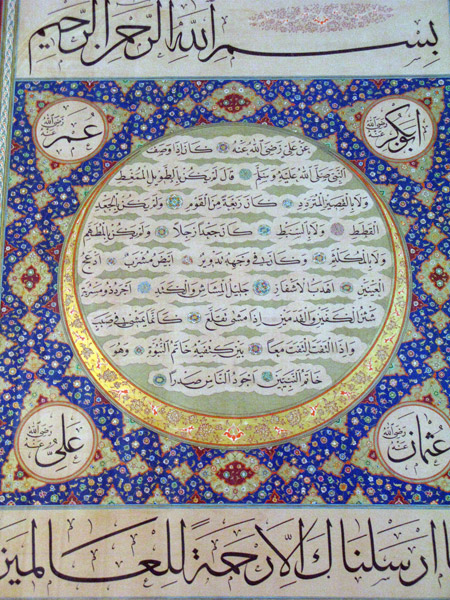 بسم الله الرحمن الرحيم
ابوبكر رضي الله عنه
عمر رضي الله عنه
عن علي رضي الله عنه كان اذا وصف
النبي صلى الله عليه وسلم قال لم يكن بالطويل الممغط
ولا بالقصير المتردد كان ربعة من القوم ولم يكن بالجعد
القطط ولا بالسبط كان جعدا رجلا ولم يكن بالمطهم
ولا بالمكلثم وكان في وجهه تدوير ابيض مشرب ادعج
العينين اهدب الاشفار جليل المشاش والكتد اجرد ذو مسربة
شثن الكفين والقدمين اذا مشى تقلع كانما يمشي في صبب
واذا التفت التفت معا بين كتفيه خاتم النبوة وهو
خاتم النبيين اجود الناس صدرا
عثمان رضي الله عنه
علي رضي الله عنه
ا ارسلناك الا رحمة للعالمين